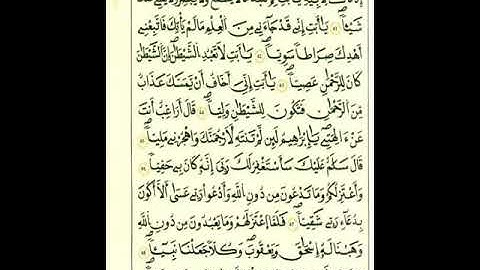 شَيْـًٔا يَٰٓأَبَتِ إِنِّي قَدْ جَآءَنِي مِنَ الْعِلْمِ مَا لَمْ يَأْتِكَ فَاتَّبِعْنِيٓ
أَهْدِكَ صِرَاطًا سَوِيًّا يَٰٓأَبَتِ لَا تَعْبُدِ الشَّيْطَٰنَ إِنَّ الشَّيْطَٰنَ
كَانَ لِلرَّحْمَٰنِ عَصِيًّا يَٰٓأَبَتِ إِنِّيٓ أَخَافُ أَنْ يَمَسَّكَ عَذَابٌ
مِنَ الرَّحْمَٰنِ فَتَكُونَ لِلشَّيْطَٰنِ وَلِيًّا قَالَ أَرَاغِبٌ أَنْتَ
عَنْ ءَالِهَتِي يَٰٓإِبْرَٰهِيمُ لَئِنْ لَمْ تَنْتَهِ لَأَرْجُمَنَّكَ وَاهْجُرْنِي مَلِيًّا
قَالَ سَلَٰمٌ عَلَيْكَ سَأَسْتَغْفِرُ لَكَ رَبِّيٓ إِنَّهُ كَانَ بِي حَفِيًّا
وَأَعْتَزِلُكُمْ وَمَا تَدْعُونَ مِنْ دُونِ اللَّهِ وَأَدْعُوا رَبِّي عَسَىٰٓ أَلَّآ أَكُونَ
بِدُعَآءِ رَبِّي شَقِيًّا فَلَمَّا اعْتَزَلَهُمْ وَمَا يَعْبُدُونَ مِنْ دُونِ اللَّهِ
وَهَبْنَا لَهُٓ إِسْحَٰقَ وَيَعْقُوبَ وَكُلًّا جَعَلْنَا نَبِيًّا